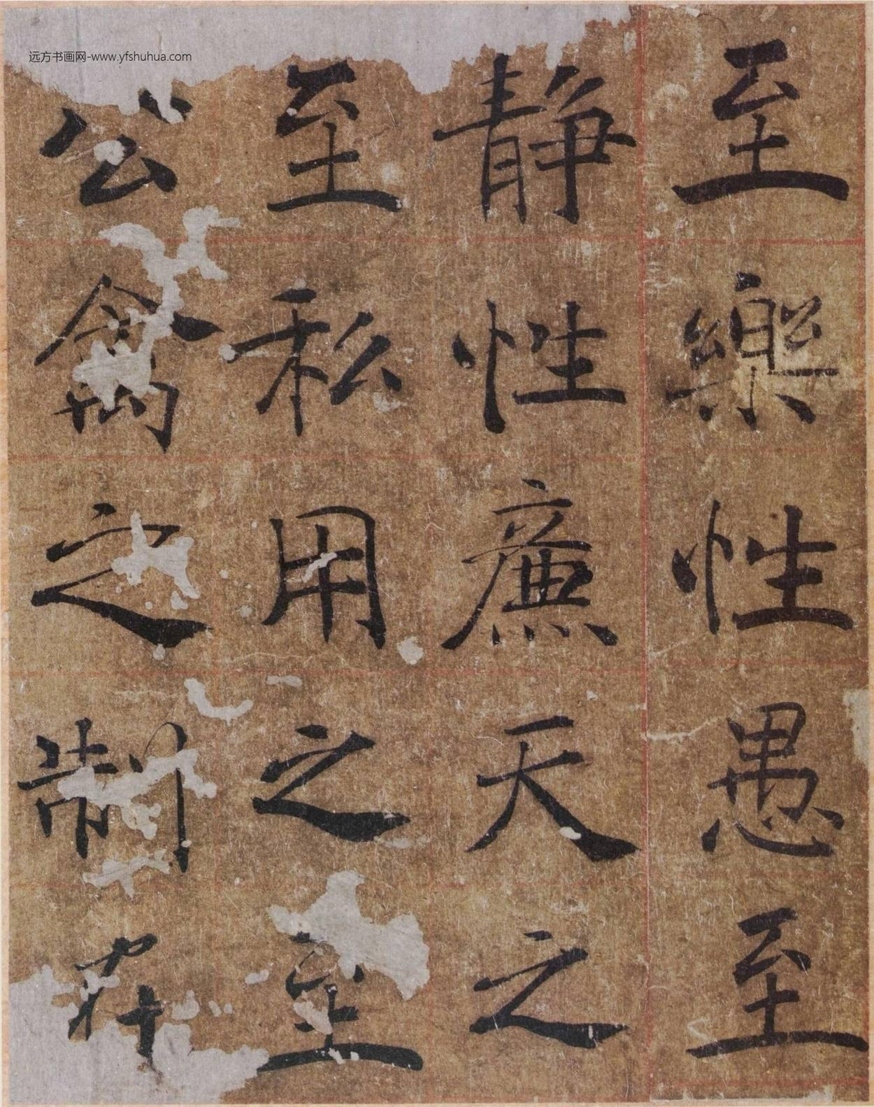 远方书画网-www.yfshuhua.com
至樂性愚至
静性廉天之
至私用之至
公禽之制在